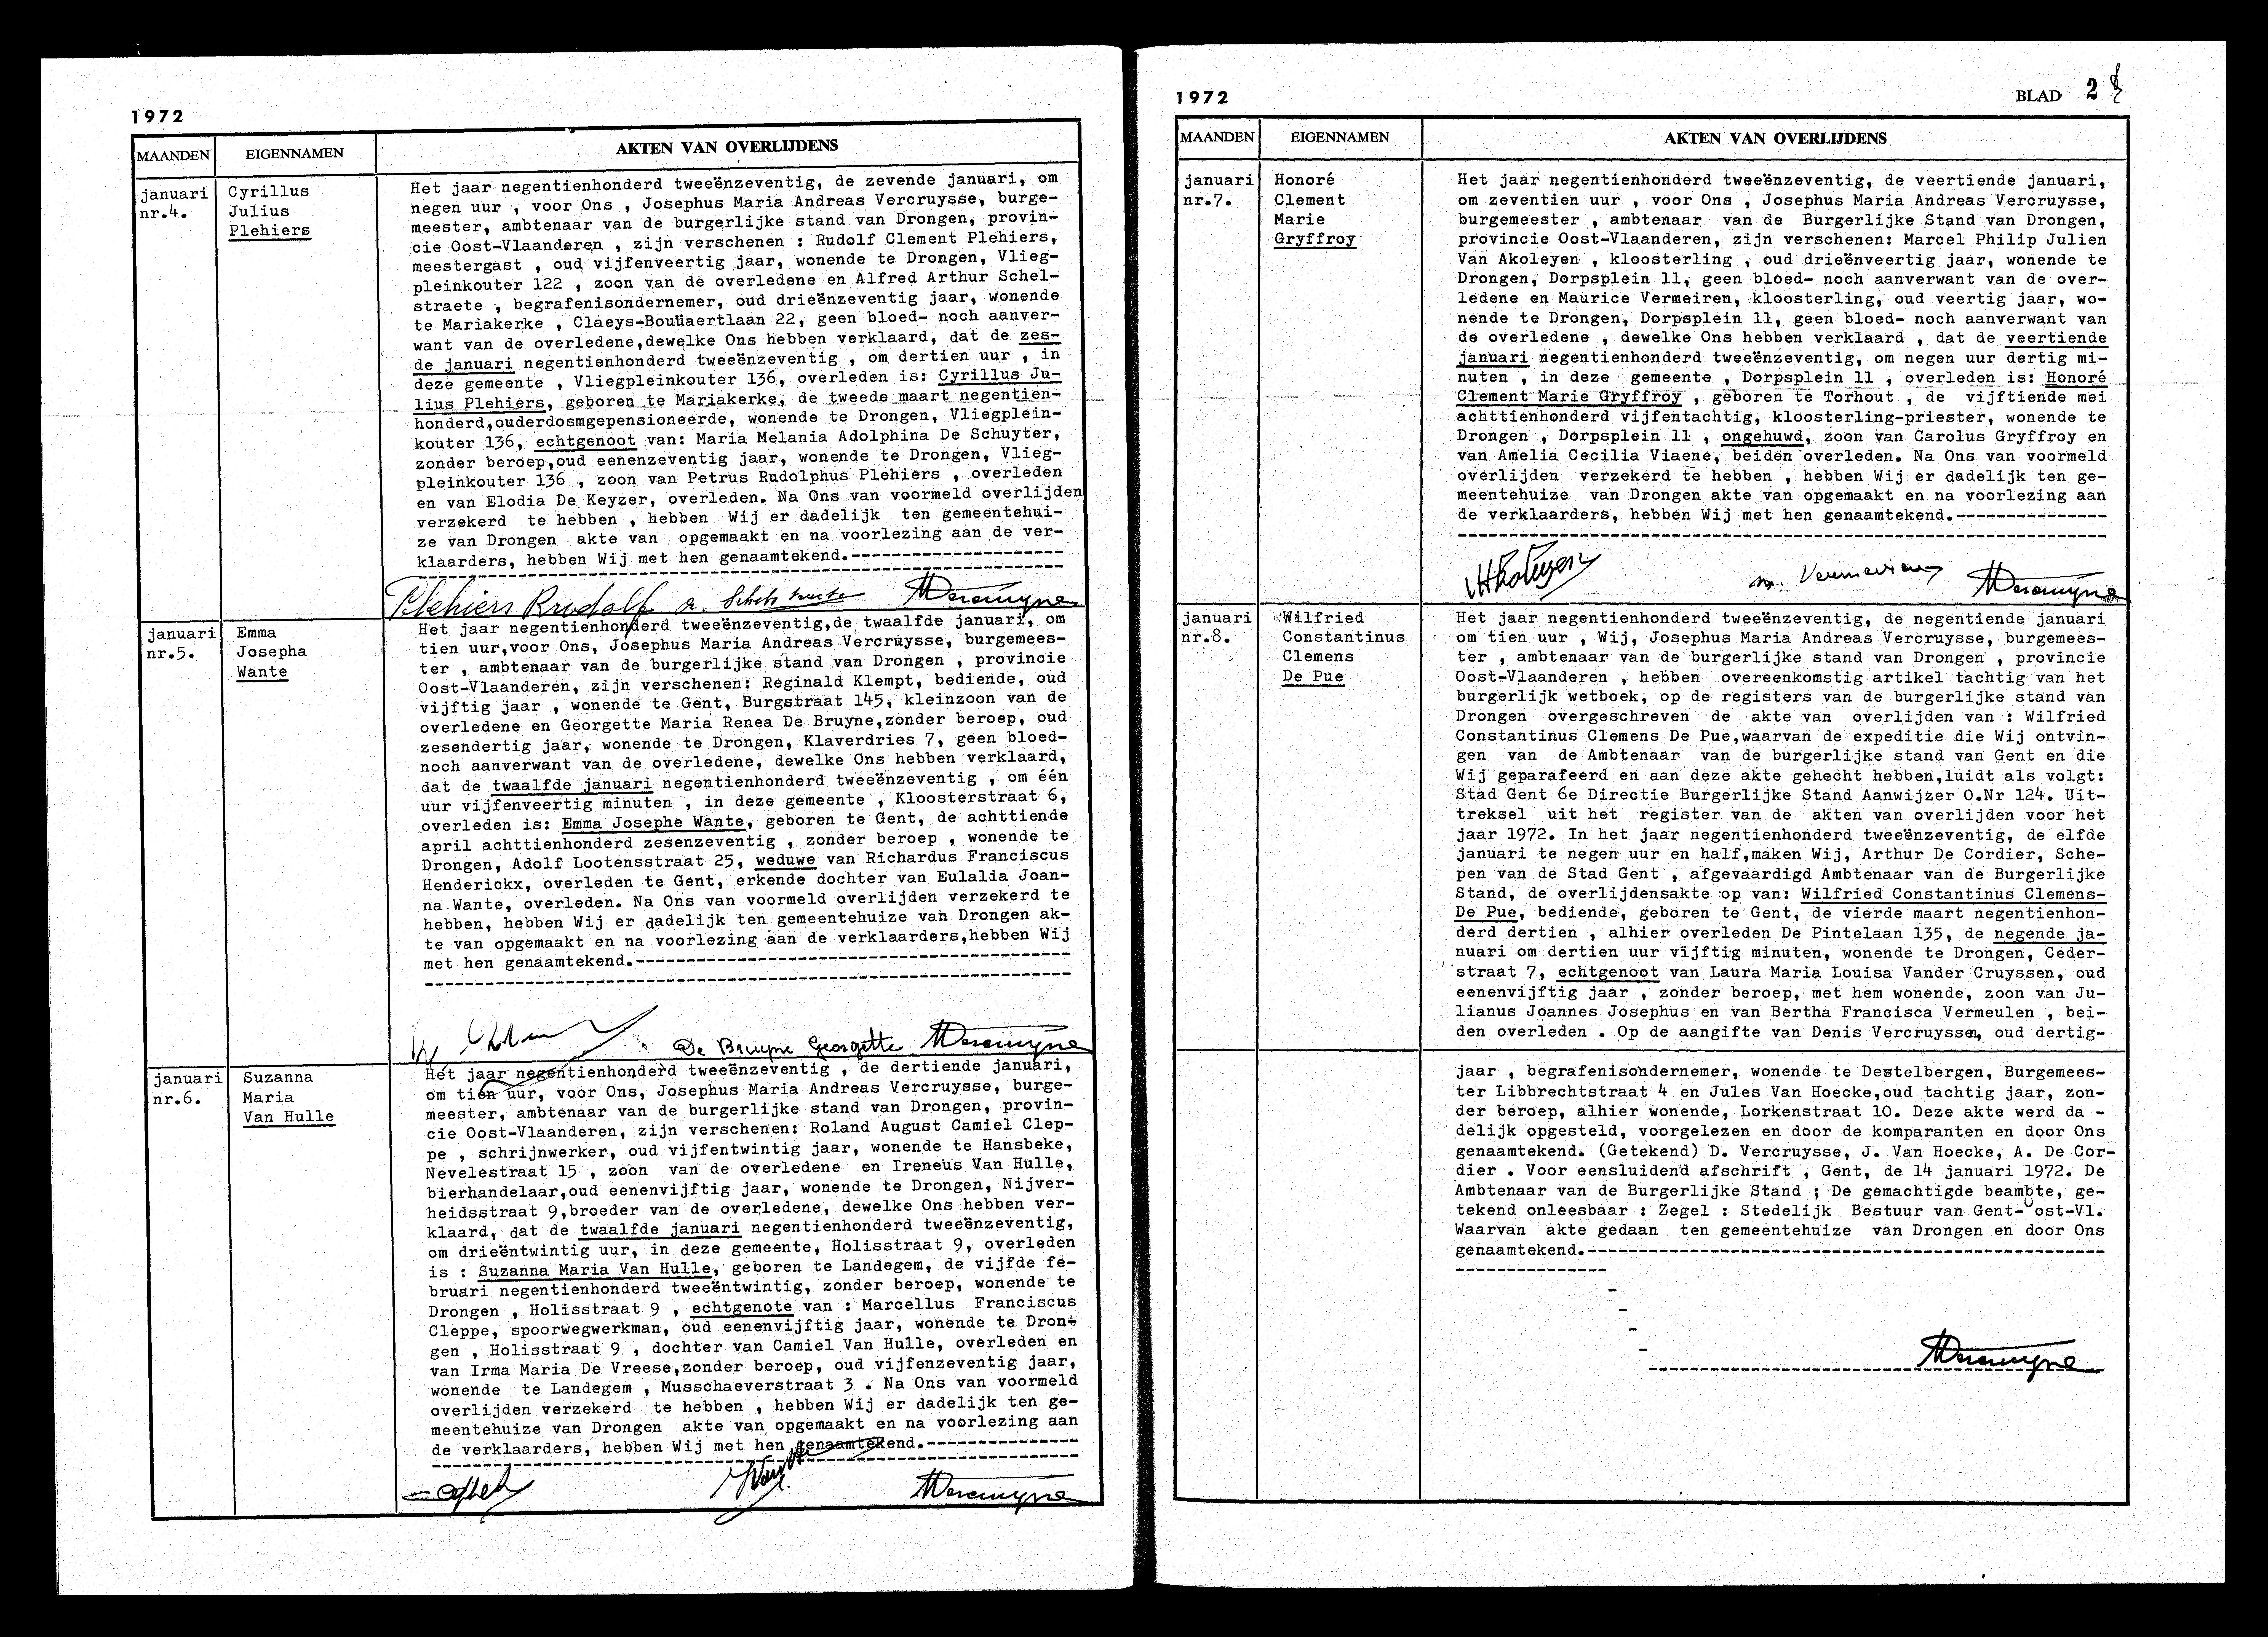 1972
MAANDEN EIGENNAMEN AKTEN VAN OVERLIJDENS
januari
nr.4.
Cyrillus
Julius
Plehiers
Het jaar negentienhonderd tweeënzeventig, de zevende januari, om
negen uur , voor Ons , Josephus Maria Andreas Vercruysse, burge-
meester, ambtenaar van de burgerlijke stand van Drongen, provin-
cie Oost-Vlaanderen , zijn verschenen : Rudolf Clement Plehiers,
meestergast , oud vijfenveertig jaar, wonende te Drongen, Vlieg-
pleinkouter 122 , zoon van de overledene en Alfred Arthur Schel-
straete , begrafenisondernemer, oud drieënzeventig jaar, wonende
te Mariakerke , Claeys-Bouüaertlaan 22, geen bloed- noch aanver-
want van de overledene,dewelke Ons hebben verklaard, dat de zes-
de januari negentienhonderd tweeënzeventig , om dertien uur , in
deze gemeente , Vliegpleinkouter 136, overleden is: Cyrillus Ju-
lius Plehiers, geboren te Mariakerke, de tweede maart negentien-
honderd,ouderdosmgepensioneerde, wonende te Drongen, Vliegplein-
kouter 136, echtgenoot van: Maria Melania Adolphina De Schuyter,
zonder beroep,oud eenenzeventig jaar, wonende te Drongen, Vlieg-
pleinkouter 136 , zoon van Petrus Rudolphus Plehiers , overleden
en van Elodia De Keyzer, overleden. Na Ons van voormeld overlijden
verzekerd te hebben , hebben Wij er dadelijk ten gemeentehui-
ze van Drongen akte van opgemaakt en na voorlezing aan de ver-
klaarders, hebben Wij met hen genaamtekend.---------------------
Plehiers Rudolf a. Schelstraete Vercruysse
januari
nr.5.
Emma
Josepha
Wante
Het jaar negentienhonderd tweeënzeventig,de twaalfde januari, om
tien uur,voor Ons, Josephus Maria Andreas Vercruysse, burgemees-
ter , ambtenaar van de burgerlijke stand van Drongen , provincie
Oost-Vlaanderen, zijn verschenen: Reginald Klempt, bediende, oud
vijftig jaar , wonende te Gent, Burgstraat 145, kleinzoon van de
overledene en Georgette Maria Renea De Bruyne,zonder beroep, oud
zesendertig jaar, wonende te Drongen, Klaverdries 7, geen bloed-
noch aanverwant van de overledene, dewelke Ons hebben verklaard,
dat de twaalfde januari negentienhonderd tweeënzeventig , om één
uur vijfenveertig minuten , in deze gemeente , Kloosterstraat 6,
overleden is: Emma Josephe Wante, geboren te Gent, de achttiende
april achttienhonderd zesenzeventig , zonder beroep , wonende te
Drongen, Adolf Lootensstraat 25, weduwe van Richardus Franciscus
Henderickx, overleden te Gent, erkende dochter van Eulalia Joan-
na Wante, overleden. Na Ons van voormeld overlijden verzekerd te
hebben, hebben Wij er dadelijk ten gemeentehuize van Drongen ak-
te van opgemaakt en na voorlezing aan de verklaarders,hebben Wij
met hen genaamtekend.-------------------------------------------
De Bruyne Georgette Vercruysse
januari
nr.6.
Suzanna
Maria
Van Hulle
Het jaar negentienhonderd tweeënzeventig , de dertiende januari,
om tien uur, voor Ons, Josephus Maria Andreas Vercruysse, burge-
meester, ambtenaar van de burgerlijke stand van Drongen, provin-
cie Oost-Vlaanderen, zijn verschenen: Roland August Camiel Clep-
pe , schrijnwerker, oud vijfentwintig jaar, wonende te Hansbeke,
Nevelestraat 15 , zoon van de overledene en Ireneus Van Hulle,
bierhandelaar,oud eenenvijftig jaar, wonende te Drongen, Nijver-
heidsstraat 9,broeder van de overledene, dewelke Ons hebben ver-
klaard, dat de twaalfde januari negentienhonderd tweeënzeventig,
om drieëntwintig uur, in deze gemeente, Holisstraat 9, overleden
is : Suzanna Maria Van Hulle, geboren te Landegem, de vijfde fe-
bruari negentienhonderd tweeëntwintig, zonder beroep, wonende te
Drongen , Holisstraat 9 , echtgenote van : Marcellus Franciscus
Cleppe, spoorwegwerkman, oud eenenvijftig jaar, wonende te Dron-
gen , Holisstraat 9 , dochter van Camiel Van Hulle, overleden en
van Irma Maria De Vreese,zonder beroep, oud vijfenzeventig jaar,
wonende te Landegem , Musschaeverstraat 3 . Na Ons van voormeld
overlijden verzekerd te hebben , hebben Wij er dadelijk ten ge-
meentehuize van Drongen akte van opgemaakt en na voorlezing aan
de verklaarders, hebben Wij met hen genaamtekend.---------------
Vercruysse
1972 BLAD 2
MAANDEN EIGENNAMEN AKTEN VAN OVERLIJDENS
januari
nr.7.
Honoré
Clement
Marie
Gryffroy
Het jaar negentienhonderd tweeënzeventig, de veertiende januari,
om zeventien uur , voor Ons , Josephus Maria Andreas Vercruysse,
burgemeester , ambtenaar van de Burgerlijke Stand van Drongen,
provincie Oost-Vlaanderen, zijn verschenen: Marcel Philip Julien
Van Akoleyen , kloosterling , oud drieënveertig jaar, wonende te
Drongen, Dorpsplein 11, geen bloed- noch aanverwant van de over-
ledene en Maurice Vermeiren, kloosterling, oud veertig jaar, wo-
nende te Drongen, Dorpsplein 11, geen bloed- noch aanverwant van
de overledene , dewelke Ons hebben verklaard , dat de veertiende
januari negentienhonderd tweeënzeventig, om negen uur dertig mi-
nuten , in deze gemeente , Dorpsplein 11 , overleden is: Honoré
Clement Marie Gryffroy , geboren te Torhout , de vijftiende mei
achttienhonderd vijfentachtig, kloosterling-priester, wonende te
Drongen , Dorpsplein 11 , ongehuwd, zoon van Carolus Gryffroy en
van Amelia Cecilia Viaene, beiden overleden. Na Ons van voormeld
overlijden verzekerd te hebben , hebben Wij er dadelijk ten ge-
meentehuize van Drongen akte van opgemaakt en na voorlezing aan
de verklaarders, hebben Wij met hen genaamtekend.---------------
VAkoleyen m. Vermeiren Vercruysse
januari
nr.8.
Wilfried
Constantinus
Clemens
De Pue
Het jaar negentienhonderd tweeënzeventig, de negentiende januari
om tien uur , Wij, Josephus Maria Andreas Vercruysse, burgemees-
ter , ambtenaar van de burgerlijke stand van Drongen , provincie
Oost-Vlaanderen , hebben overeenkomstig artikel tachtig van het
burgerlijk wetboek, op de registers van de burgerlijke stand van
Drongen overgeschreven de akte van overlijden van : Wilfried
Constantinus Clemens De Pue,waarvan de expeditie die Wij ontvin-
gen van de Ambtenaar van de burgerlijke stand van Gent en die
Wij geparafeerd en aan deze akte gehecht hebben,luidt als volgt:
Stad Gent 6e Directie Burgerlijke Stand Aanwijzer O.Nr 124. Uit-
treksel uit het register van de akten van overlijden voor het
jaar 1972. In het jaar negentienhonderd tweeënzeventig, de elfde
januari te negen uur en half,maken Wij, Arthur De Cordier, Sche-
pen van de Stad Gent , afgevaardigd Ambtenaar van de Burgerlijke
Stand, de overlijdensakte op van: Wilfried Constantinus Clemens-
De Pue, bediende, geboren te Gent, de vierde maart negentienhon-
derd dertien , alhier overleden De Pintelaan 135, de negende ja-
nuari om dertien uur vijftig minuten, wonende te Drongen, Ceder-
straat 7, echtgenoot van Laura Maria Louisa Vander Cruyssen, oud
eenenvijftig jaar , zonder beroep, met hem wonende, zoon van Ju-
lianus Joannes Josephus en van Bertha Francisca Vermeulen , bei-
den overleden . Op de aangifte van Denis Vercruyssen, oud dertig-
jaar , begrafenisondernemer, wonende te Destelbergen, Burgemees-
ter Libbrechtstraat 4 en Jules Van Hoecke,oud tachtig jaar, zon-
der beroep, alhier wonende, Lorkenstraat 10. Deze akte werd da -
delijk opgesteld, voorgelezen en door de komparanten en door Ons
genaamtekend. (Getekend) D. Vercruysse, J. Van Hoecke, A. De Cor-
dier . Voor eensluidend afschrift , Gent, de 14 januari 1972. De
Ambtenaar van de Burgerlijke Stand ; De gemachtigde beambte, ge-
tekend onleesbaar : Zegel : Stedelijk Bestuur van Gent-Oost-Vl.
Waarvan akte gedaan ten gemeentehuize van Drongen en door Ons
genaamtekend.---------------------------------------------------
Vercruysse